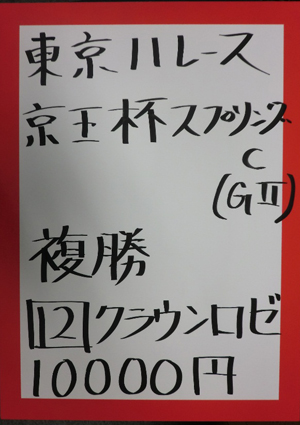 東京11レース
京王杯スプリング
C
(GII)
複勝
12クラウンロゼ
10000円